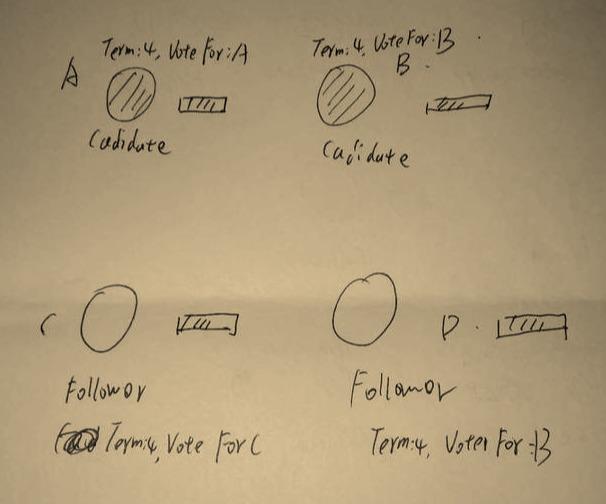 Term:4, Vote For:A
A
Cadidate
Term:4, Vote For:B
B
Cadidate
C
Follower
Term:4, Vote For C
D
Follower
Term:4, Voter For:B